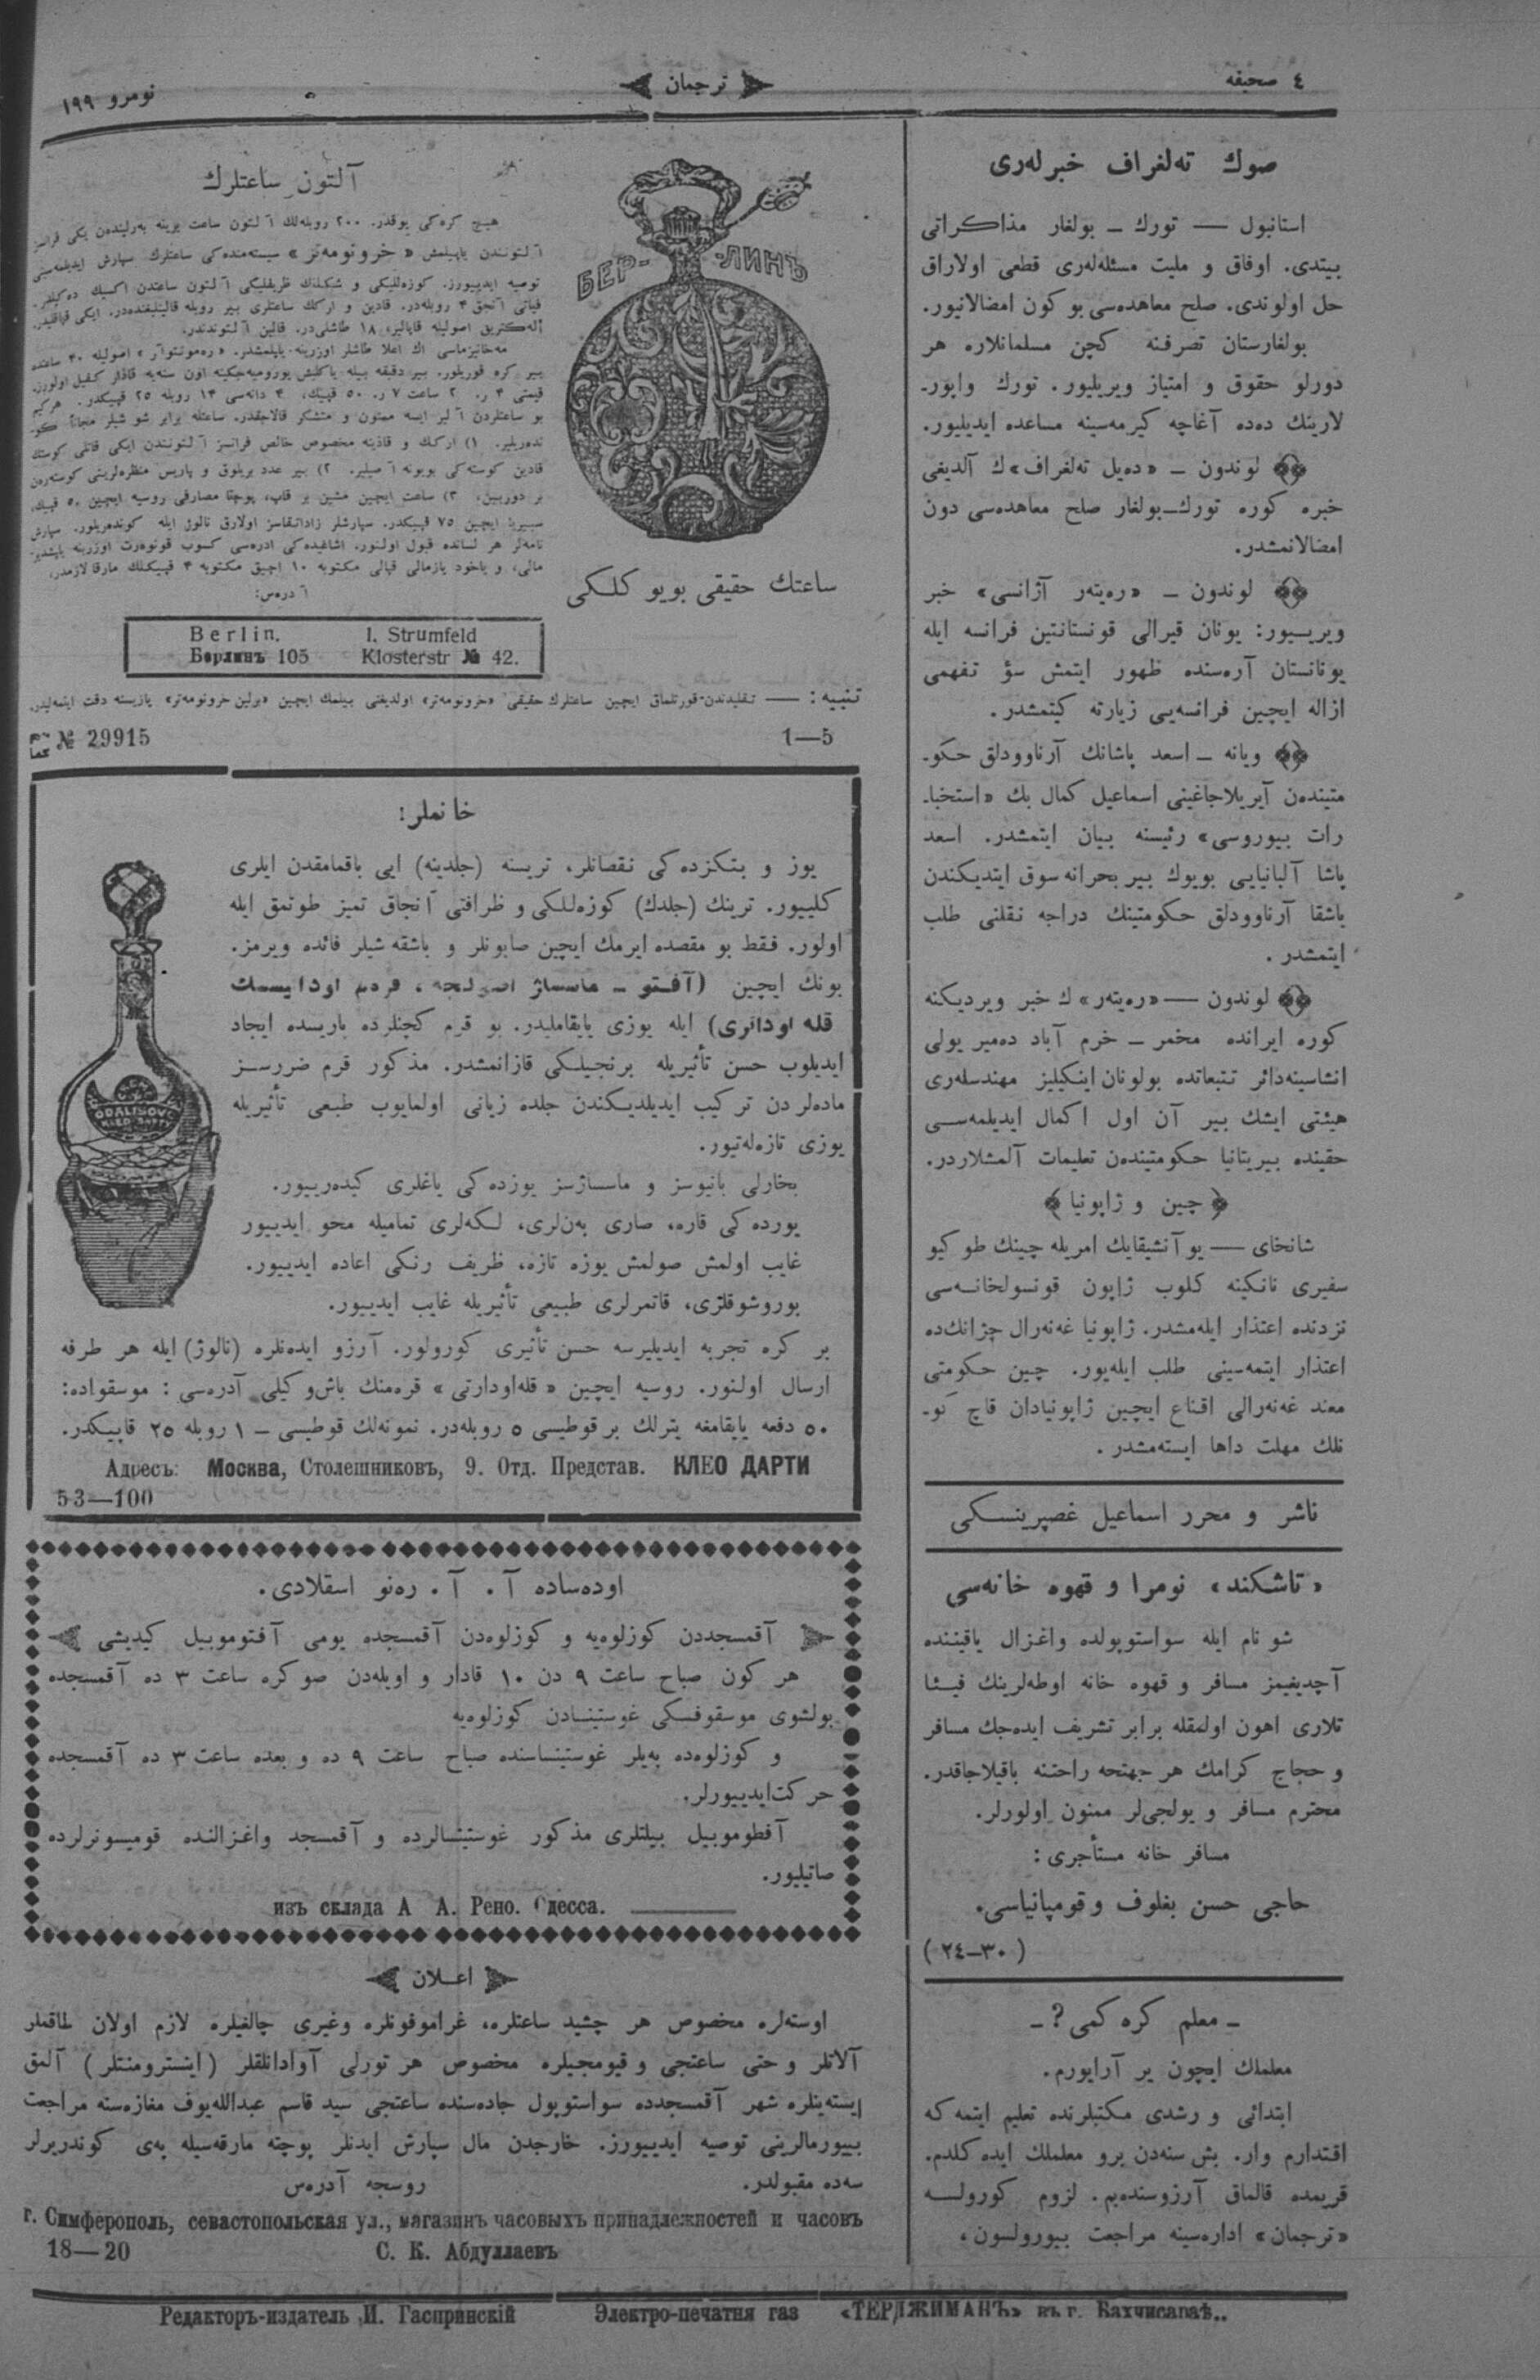 ٤ صحیفه
ترجمان
نومرو ١٩٩
صوك تەلغراف خبرلەری
استانبول — تورك ـ بولغار مذاكراتی
بیتدی. اوفاق و ملیت مسئلەلەری قطعی اولاراق
حل اولوندی. صلح معاهدەسی بو كون امضالانیور.
بولغارستان تصرفنه كچن مسلمانلاره هر
دورلو حقوق و امتیاز ویریلیور. تورك واپور-
لارینك دەدە آغاچه كیرمەسینه مساعده ایدیلیور.
لوندون ـ «دەیل تەلغراف»ك آلدیغی
خبره كوره تورك-بولغار صلح معاهدەسی دون
امضالانمشدر.
لوندون ـ «رەیتەر آژانسی» خبر
ویریـیور: یونان قیرالی قونستانتین فرانسه ایله
یونانستان آرەسنده ظهور ایتمش سؤ تفهمی
ازاله ایچین فرانسەیی زیارته كیتمشدر.
ویانه ـ اسعد پاشانك آرناوودلق حكو-
متیندەن آیریلاجاغینی اسماعیل كمال بك «استخبا-
رات بیوروسی» رئیسنه بیان ایتمشدر. اسعد
پاشا آلبانیایی بویوك بیر بحرانه سوق ایتدیكندن
باشقا آرناوودلق حكومتینك دراجه نقلنی طلب
ایتمشدر.
لوندون — «رەیتەر»ك خبر ویردیكنه
كوره ایرانده مخمر ـ خرم آباد دەمیر یولی
انشاسینەدائر تتبعاتده بولونان اینكیلیز مهندسلەری
هیئتی ایشك بیر آن اول اكمال ایدیلمەسـی
حقینده بیریتانیا حكومتیندەن تعلیمات آلمشلاردر.
﴿ چین و ژاپونیا ﴾
شانخای — یوآنشیقایك امریله چینك طوكیو
سفیری نانكینه كلوب ژاپون قونسولخانـەسی
نزدنده اعتذار ایلەمشدر. ژاپونیا غەنەرال چژانك‌ده
اعتذار ایتمەسینی طلب ایلەیور. چین حكومتی
معند غەنەرالی اقناع ایچین ژاپونیادان قاچ كو-
نلك مهلت داها ایستەمشدر.
ناشر و محرر اسماعیل غصپرینسكی
«تاشكند» نومرا و قهوه خانەسی
شو نام ایله سواستوپولده واغزال یاقیننده
آچدیغیمز مسافر و قهوه خانه اوطەلرینك فیئا
تلاری اهون اولمقله برابر تشریف ایدەجك مسافر
و حجاج كرامك هر جهتجه راحتنه باقیلاجاقدر.
محترم مسافر و یولجی‌لر ممنون اولورلر.
مسافر خانه مستأجری:
حاجی حسن بغلوف و قومپانیاسی.
(٢٤—٣٠)
ـ معلم كره كمی؟ ـ
معلملك ایچون یر آرایورم.
ابتدائی و رشدی مكتبلرنده تعلیم ایتمەكه
اقتدارم وار. بش سنەدن برو معلملك ایده كلدم.
قریمده قالماق آرزوسندەیم. لزوم كورولـسه
«ترجمان» ادارەسینه مراجعت بیورولسون.
آلتون ساعتلرك
هیچ كرەكی یوقدر. ٢٠٠ روبلەلك آلتون ساعت یرینه بەرلیندەن یكی فرانسز
آلتونـندن یاپیلمش «خرونومەتر» سیستەمندەكی ساعتلرك سپارش ایدیلمەسنی
توصیه ایدییورز. كوزەللیكی و شكلنك ظریفلیكی آلتون ساعتدن اكسیك دەكیلدر.
فیاتی آنجق ۴ روبلەدر. قادین و اركك ساعتلری بیر روبله قالینلیغندەدر. ایكی قپاقلیدر
ألەكتریق اصولیله قاپالیر، ١٨ طاشلی‌در. قالین آلتوندندر.
مەخانیزماسی اك اعلا طاشلر اوزرینه یاپلمشدر. «رەمونتوآر» اصولیله ۴٠ ساعتده
بیر كره قوریلور. بیر دقیقه بیله یاكلیش یورومیەجكینه اون سنەیه قادار كفیل اولورز.
قیمتی ۴ ر. ٢ ساعت ٧ ر. ٥٠ قپیك، ۴ دانەسی ١۴ روبله ٢٥ قپیكدر. هركیم
بو ساعتلردن آلیر ایسه ممنون و متشكر قالاجقدر. ساعتله برابر شو شیلر مجاناً كو-
ندەریلیر. ١) اركك و قادینه مخصوص خالص فرانسز آلتونندن ایكی قاتلی كوستك
قادین كوستەكی بویونه آصیلیر. ٢) بیر عدد بریلوق و پاریس منظرەلرینی كوستەرەن
بر دوربین. ٣) ساعت ایچین مشین بر قاپ، پوچتا مصارفی روسیه ایچین ٥٠ قپیك،
سیبیریا ایچین ٧٥ قپیكدر. سپارشلر زاداتـقاسز اولارق نالوژ ایله كوندەریلور. سپارش
نامەلر هر لسانده قبول اولنور. اشاغیدەكی ادرەسی كسوب قونوەرت اوزرینه یاپشدیر-
مالی، و یاخود یازمالی قپالی مكتوبه ١٠ آچیق مكتوبه ۴ قپیكلك مارقا لازمدر.
آدرەس:
БЕР- -ЛИНЪ
ساعتك حقیقی بویو كلـكی
Berlin. I. Strumfeld
Берлинъ 105 Klosterstr № 42.
تنبیه: — تقلیدندن قورتلماق ایچین ساعتلرك حقیقی «خرونومەتر» اولدیغنی بیلمك ایچین «برلین خرونومەتر» یازیسنه دقت ایتمەلیدر.
№ 29915
1—5
خانملر!
یوز و بتكزدەكی نقصانلر، تریسنه (جلدینه) ایی باقمامقدن ایلری
كلییور. ترینك (جلدك) كوزەللكی و ظرافتی آنجاق تمیز طوتمق ایله
اولور. فقط بو مقصده ایرمك ایچین صابونلر و باشقه شیلر فائده ویرمز.
بونك ایچین (آفتو ـ ماسساژ اصولـجه، قرەم اودالیسـك
قله اودارتی) ایله یوزی یایقاملیدر. بو قرم كچنلرده پاریسده ایجاد
ایدیلوب حسن تأثیریله برنجیلـكی قازانمشدر. مذكور قرم ضررسـز
مادەلردن تركیب ایدیلدیكندن جلده زیانی اولمایوب طبیعی تأثیریله
یوزی تازەلەتیور.
بخارلی بانیوسز و ماسساژسز یوزدەكی یاغلری كیدەرییور.
یوردەكی قاره، صاری بەن‌لری، لـكەلری تمامیله محو ایدییور
غایب اولمش صولمش یوزه تازه، ظریف رنكی اعاده ایدییور.
بوروشوقلری، قاتمرلری طبیعی تأثیریله غایب ایدییور.
بر كره تجربه ایدیلیرسه حسن تأثیری كورولور. آرزو ایدەنلره (نالوژ) ایله هر طرفه
ارسال اولنور. روسیه ایچین «قله‌اودارتی» قرەمنك باش‌وكیلی آدرەسی: موسقواده:
٥٠ دفعه یایقامغه یترلك بر قوطیسی ٥ روبلەدر. نمونەلك قوطیسی ـ ١ روبله ٢٥ قاپیكدر.
ODALISQUE
Адресъ: Москва, Столешниковъ, 9. Отд. Представ. КЛЕО ДАРТИ
53—100
اودەساده آ. آ. رەنو اسقلادی.
آقمسجددن كوزلوەیه و كوزلوەدن آقمسجده یومی آفتوموبیل كیدیشی
هر كون صباح ساعت ٩ دن ١٠ قادار و اویلەدن صوكره ساعت ٣ ده آقمسجده
بولشوی موسقوفسكی غوستینـادن كوزلوەیه
و كوزلوەده بەیلر غوستینساسنده صباح ساعت ٩ ده و بعده ساعت ٣ ده آقمسجده
حركت‌ایدییورلر.
آفطوموبیل بیلتلری مذكور غوستینسالرده و آقمسجد واغزالنده قومیسونرلرده
صاتیلیور.
изъ склада А А. Рено. Одесса.
اعـلان
اوستەلره مخصوص هر چشید ساعتلره، غراموفونلره وغیری چالغیلره لازم اولان طاقملر
آلاتلر و حتی ساعتجی و قیومجیلره مخصوص هر تورلی آوادانلقلر (اینسترومنتلر) آلمق
ایستەینلره شهر آقمسجدده سواستوپول جادەسنده ساعتجی سید قاسم عبدالله‌یوف مغازەسنه مراجعت
بییورمالرینی توصیه ایدییورز. خارجدن مال سپارش ایدنلر پوچته مارقەسیله پەی كوندریرلر
سەده مقبولدر. روسجه آدرەس
г. Симферополь, севастопольская ул., магазинъ часовыхъ принадлежностей и часовъ
С. К. Абдуллаевъ
18—20
Редакторъ-издатель И. Гаспринскій Электро-печатня газ «ТЕРДЖИМАНЪ» въ г. Бахчисараѣ..